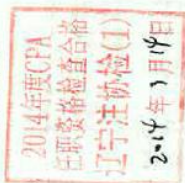 2014年度CPA
任职资格检查合格
辽宁注协检(1)
2014年3月14日